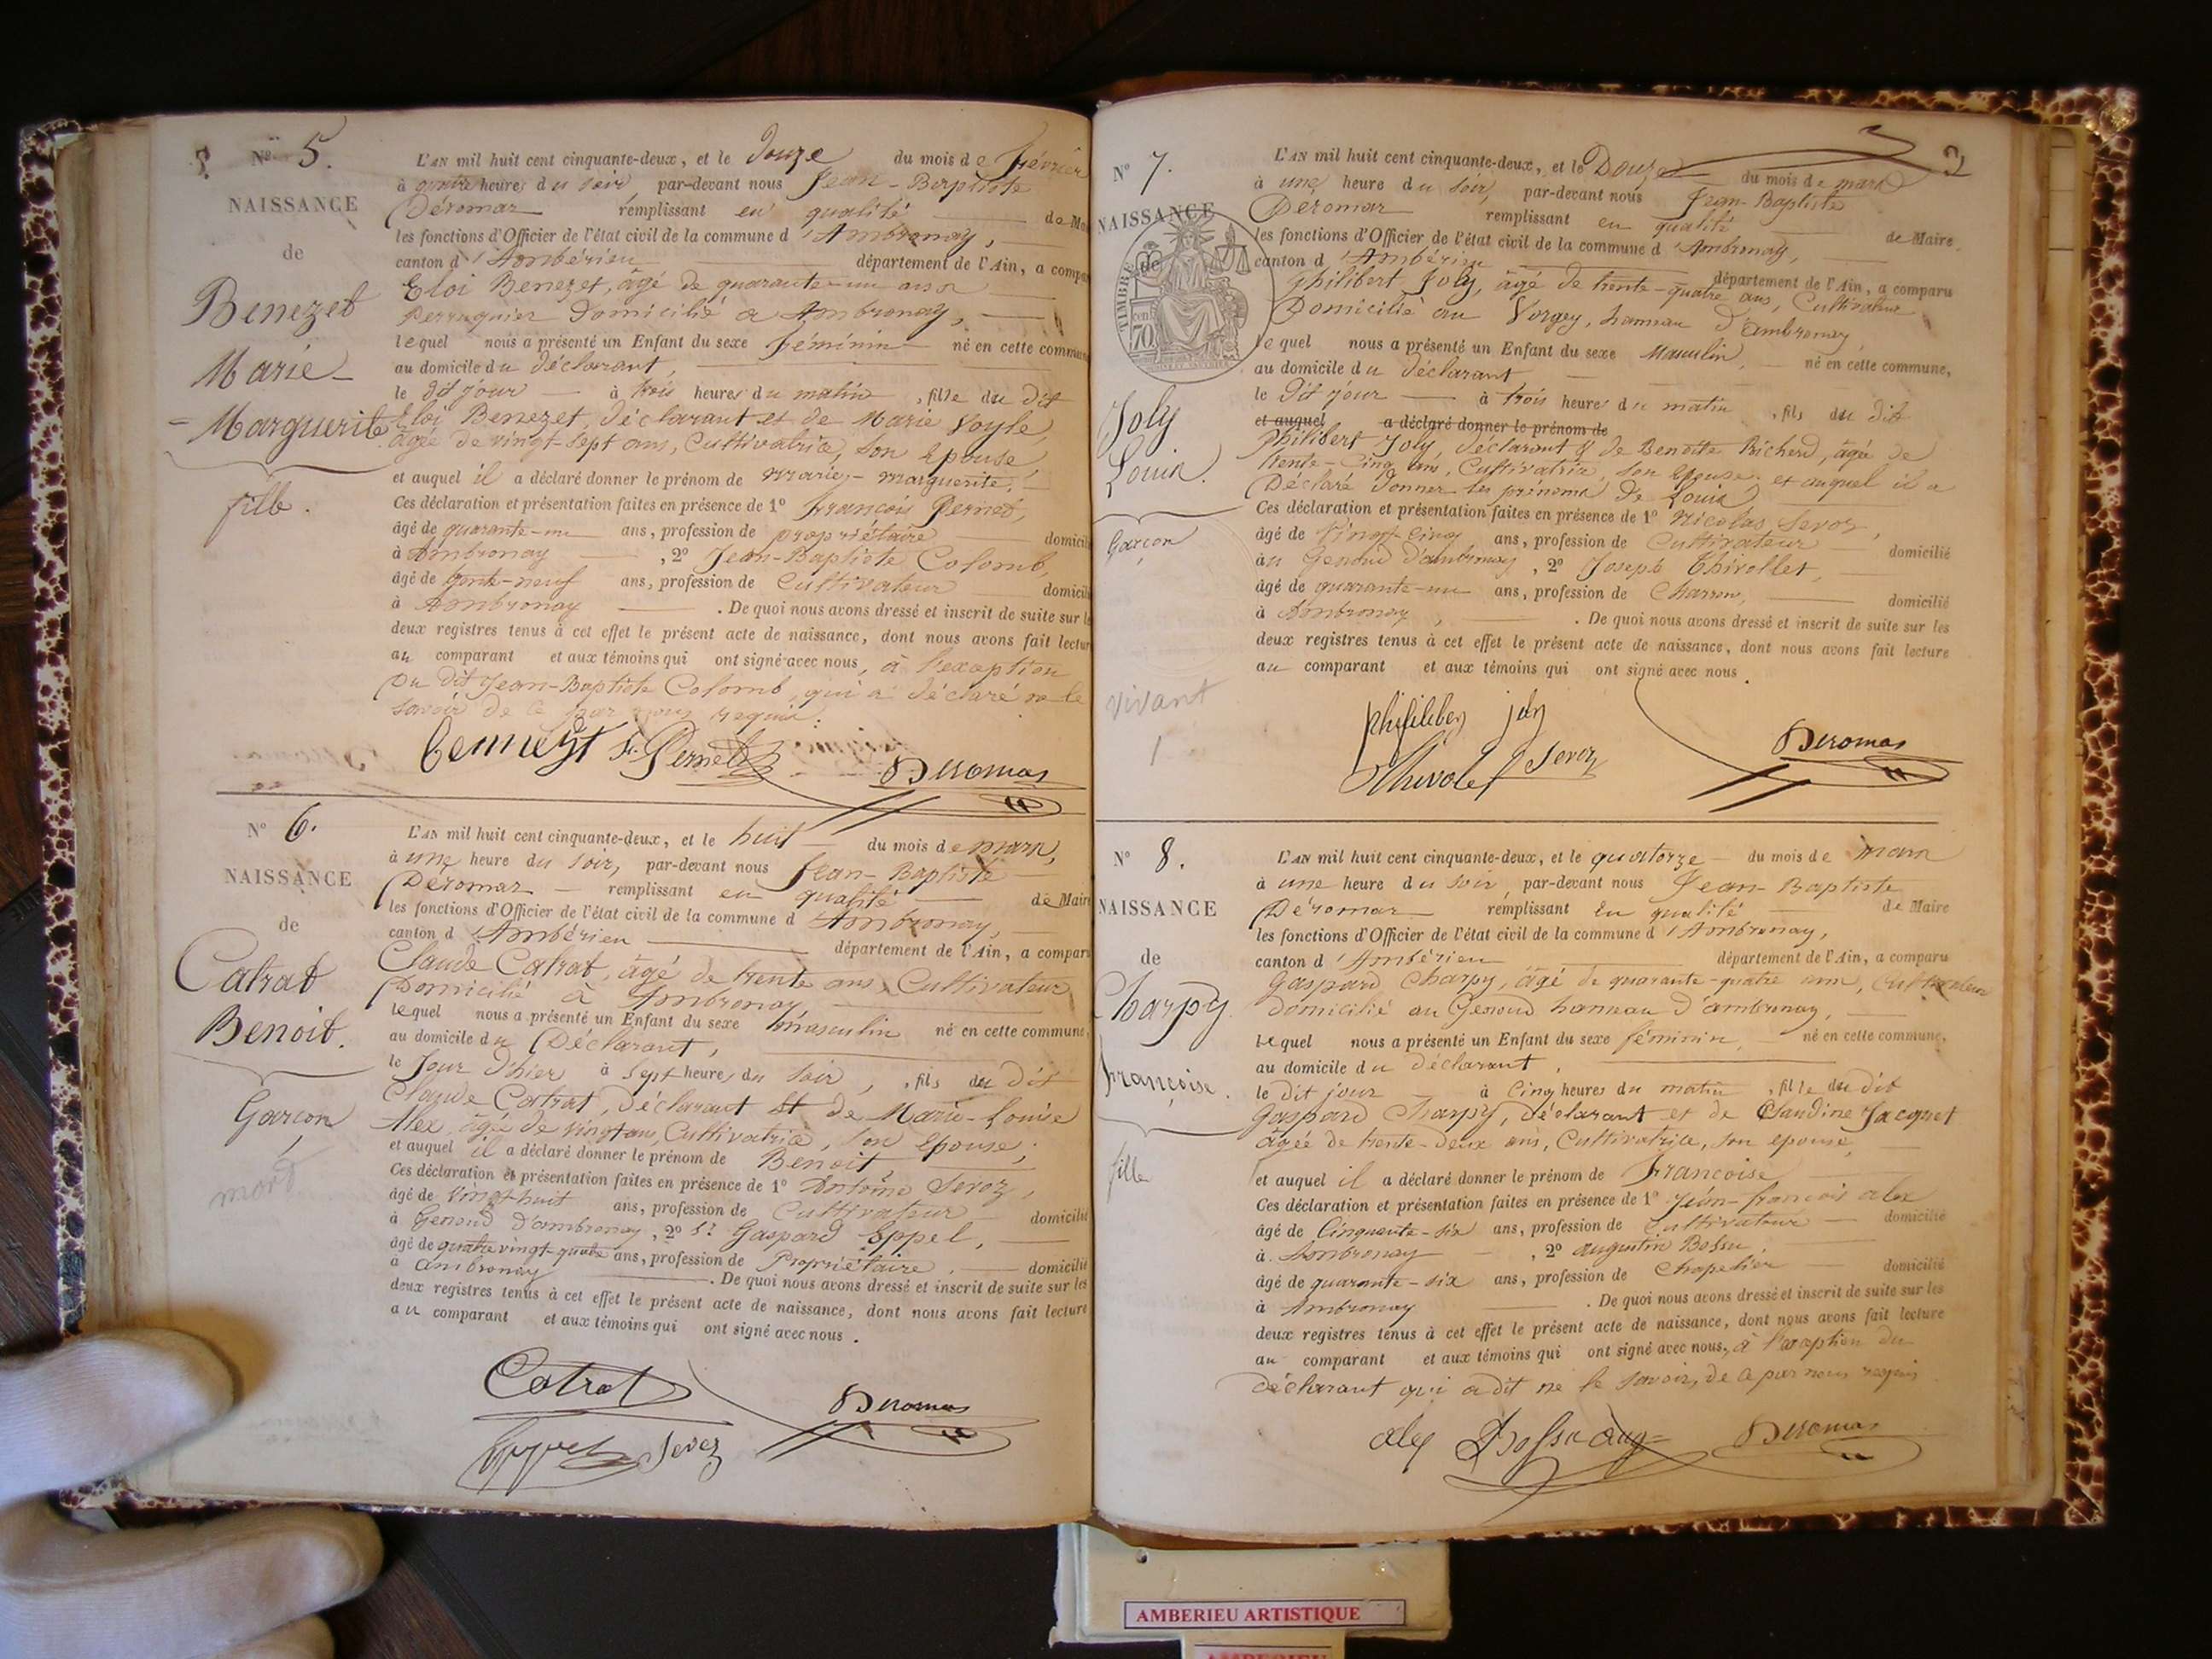 N° 5.
NAISSANCE
de
Benezet
Marie-
Marguerite
fille.
L'AN mil huit cent cinquante-deux, et le douze du mois de février
à quatre heures du soir par-devant nous Jean-Baptiste
Déromas remplissant en qualité de Ma
les fonctions d'Officier de l'état civil de la commune d'Ambronay,
canton d'Ambérieu département de l'Ain, a compa
Eloi Benezet, âgé de quarante-un ans
perruquier domicilié a Ambronay,
lequel nous a présenté un Enfant du sexe féminin né en cette commun
au domicile du déclarant,
le dit jour à trois heures du matin, fille du dit
Eloi Benezet, déclarant et de Marie Loyle,
âgée de vingt sept ans, Cultivatrice, son Epouse,
et auquel il a déclaré donner le prénom de Marie-Marguerite.
Ces déclaration et présentation faites en présence de 1° François Pernet,
âgé de quarante-un ans, profession de propriétaire domicili
à Ambronay, 2° Jean-Baptiste Colomb,
âgé de trente-neuf ans, profession de Cultivateur domicili
à Ambronay. De quoi nous avons dressé et inscrit de suite sur le
deux registres tenus à cet effet le présent acte de naissance, dont nous avons fait lectur
au comparant et aux témoins qui ont signé avec nous, à l'exception
Du dit Jean-Baptiste Colomb, qui a déclaré ne le
savoir de ce par nous requis.
Pernet Deromas
N° 6.
NAISSANCE
de
Catrat
Benoit.
Garçon
mort
L'AN mil huit cent cinquante-deux, et le huit du mois de mars,
à une heure du soir, par-devant nous Jean-Baptiste
Déromas remplissant en qualité de Maire
les fonctions d'Officier de l'état civil de la commune d'Ambronay,
canton d'Ambérieu département de l'Ain, a compar
Claude Catrat, âgé de trente ans, Cultivateur
Domicilié à Ambronay
lequel nous a présenté un Enfant du sexe masculin né en cette commune
au domicile du Déclarant,
le Jour d'hier à sept heures du soir, fils du dit
Claude Catrat, déclarant et de Marie-Louise
Alex, âgée de vingt ans, Cultivatrice, son Epouse;
et auquel il a déclaré donner le prénom de Benoit,
Ces déclaration et présentation faites en présence de 1° Antoine Sevoz,
âgé de vingt-huit ans, profession de Cultivateur domicilié
à Genoud d'ambronay, 2° Sr Gaspard Eppel,
âgé de quatre vingt-quatre ans, profession de Propriétaire, domicilié
à Ambronay. De quoi nous avons dressé et inscrit de suite sur les
deux registres tenus à cet effet le présent acte de naissance, dont nous avons fait lecture
au comparant et aux témoins qui ont signé avec nous.
Catrat Deromas
Sevoz
N° 7.
NAISSANCE
de
TIMBRE
70
Joly
Louis.
Garçon
vivant
1
2
L'AN mil huit cent cinquante-deux, et le Douze du mois de mars
à une heure du soir, par-devant nous Jean-Baptiste
Déromas remplissant en qualité de Maire,
les fonctions d'Officier de l'état civil de la commune d'Ambronay,
canton d'Ambérieu département de l'Ain, a comparu
Philibert Joly, âgé de trente-quatre ans, Cultivateur
Domicilié au Vorgey, hameau d'ambronay
lequel nous a présenté un Enfant du sexe Masculin né en cette commune,
au domicile du déclarant
le dit jour à trois heures du matin, fils du dit
et auquel a déclaré donner le prénom de
Philibert Joly, déclarant & de Benoite Richerd, âgée de
trente-cinq ans, Cultivatrice, son épouse, et auquel il a
Déclaré donner les prénoms de Louis
Ces déclaration et présentation faites en présence de 1° Nicolas Sevoz,
âgé de vingt-cinq ans, profession de Cultivateur domicilié
au Genoud d'ambronay, 2° Joseph Thivollet,
âgé de quarante-un ans, profession de Charron, domicilié
à Ambronay. De quoi nous avons dressé et inscrit de suite sur les
deux registres tenus à cet effet le présent acte de naissance, dont nous avons fait lecture
au comparant et aux témoins qui ont signé avec nous.
Thivolet Sevoz Deromas
N° 8.
NAISSANCE
de
Charpy
Françoise.
fille
L'AN mil huit cent cinquante-deux, et le quatorze du mois de mars
à une heure du soir par-devant nous Jean-Baptiste
Déromas remplissant en qualité de Maire
les fonctions d'Officier de l'état civil de la commune d'Ambronay,
canton d'Ambérieu département de l'Ain, a comparu
Gaspard Charpy, âgé de quarante-quatre ans, Cultivateur
domicilié au Genoud hameau d'ambronay,
lequel nous a présenté un Enfant du sexe féminin, né en cette commune,
au domicile du déclarant,
le dit jour à cinq heures du matin, fille du dit
Gaspard Charpy, déclarant et de Claudine Jacquet
âgée de trente-deux ans, Cultivatrice, son épouse,
et auquel il a déclaré donner le prénom de Françoise
Ces déclaration et présentation faites en présence de 1° Jean-François alex
âgé de Cinquante-six ans, profession de Cultivateur domicilié
à Ambronay, 2° augustin Bossu,
âgé de quarante-six ans, profession de Chapelier domicilié
à Ambronay. De quoi nous avons dressé et inscrit de suite sur les
deux registres tenus à cet effet le présent acte de naissance, dont nous avons fait lecture
au comparant et aux témoins qui ont signé avec nous, à l'exception du
déclarant qui a dit ne le savoir, de ce par nous requis
alex Bossu aug Deromas
AMBERIEU ARTISTIQUE
AMBERIEU